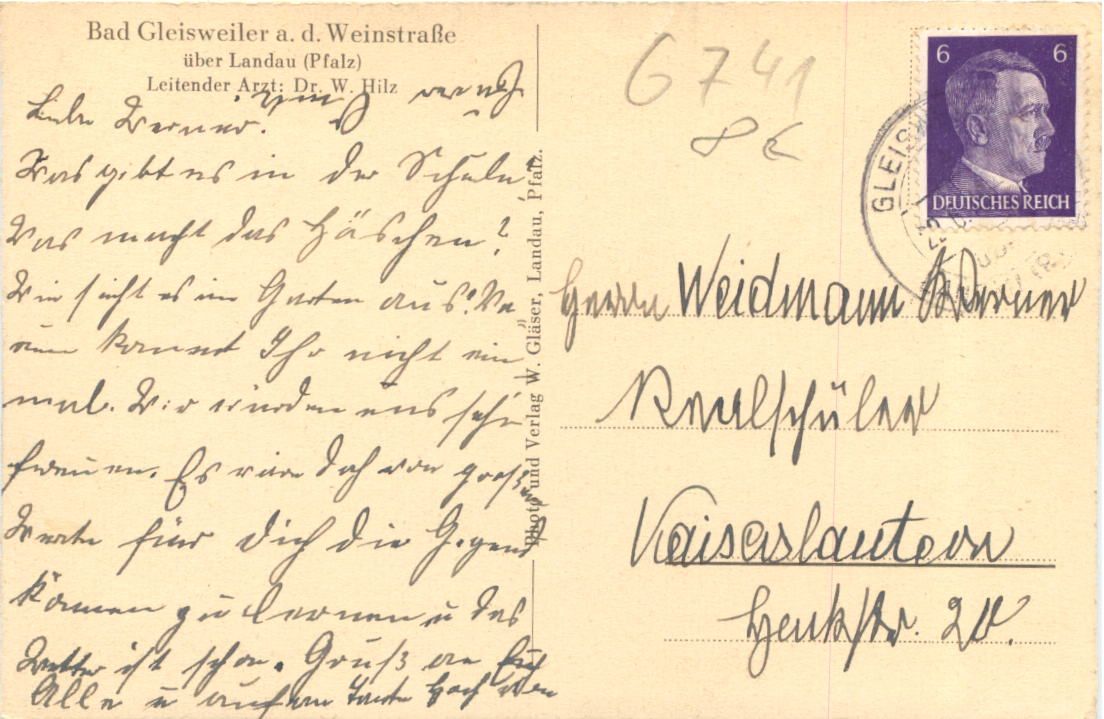 Bad Gleisweiler a. d. Weinstraße
über Landau (Pfalz)
Leitender Arzt: Dr. W. Hilz
Werner!
Was gibt es in der Schule?
Was macht das Häschen?
Wie sieht es im Garten aus? Wa
rum kommt Ihr nicht ein
mal. Wir würden uns sehr
freuen. Es wäre doch von großem
Werte für Dich die Gegend
kennen zu lernen u das
Wetter ist schön. Gruß an Euch
Alle u auch an Tante
Photo und Verlag W. Gläser, Landau, Pfalz.
6741
8€
6 6
DEUTSCHES REICH
GLEISW
Herrn Weidmann Werner
Realschüler
Kaiserslautern
20.